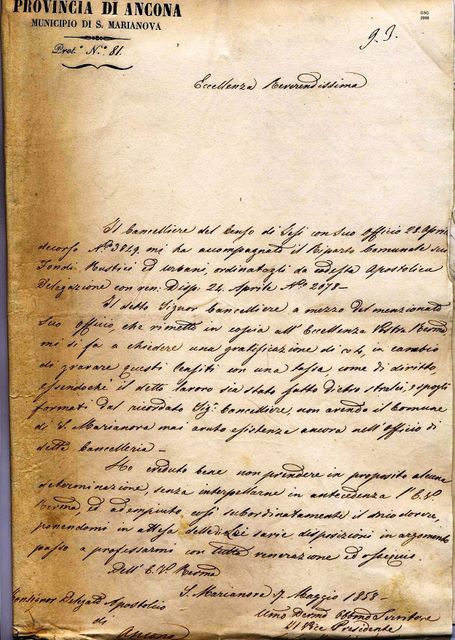 PROVINCIA DI ANCONA
MUNICIPIO DI S. MARIANOVA
Prot.º N.º 81.
GSG
Eccellenza Reverendissima
Il Cancelliere del Censo di Jesi con suo Officio 28 Aprile
decorso Nº 3829. mi ha accompagnato il Riparto Comunale sui
Fondi Rustici ed urbani, ordinatogli da codesta Apostolica
Delegazione con ven. Disp. 24 Aprile Nº 2078 —
Il detto Signor Cancelliere a mezzo del menzionato
suo officio, che rimetto in copia all'Eccellenza Vostra Rema
mi si fa a chiedere una gratificazione di in cambio
di gravare questi Censiti con una tassa, come di diritto,
essendochè il detto lavoro sia stato fatto dietro stralci, e spogli
formati dal ricordato Sigr Cancelliere, non avendo il Comune
di S. Marianova mai avuto esistenza ancora nell'officio di
detta Cancelleria —
Ho creduto bene non prendere in proposito alcuna
determinazione, senza interpellarne in antecedenza l'E.V.
Rema ed adempiuto così subordinatamente il mio dovere,
ponendomi in attesa delle di Lei savie disposizioni in argomento
passo a professarmi con tutta venerazione ed ossequio.
Dell'E.V. Rema
S. Marianova 7. Maggio 1858 —
Monsignor Delegato Apostolico
di
Ancona
Umo Devmo Obbmo Servitore
Il Vice Presidente